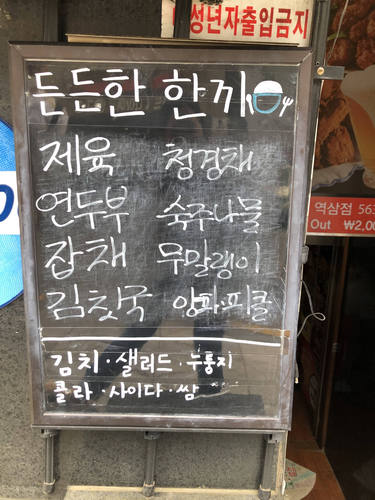 성년자출입금지
든든한 한끼
제육 청경채
연두부 숙주나물
잡채 무말랭이
김칫국 양파·피클
김치·샐러드·누룽지
콜라·사이다·쌈
역삼점 563
Out ₩2,00